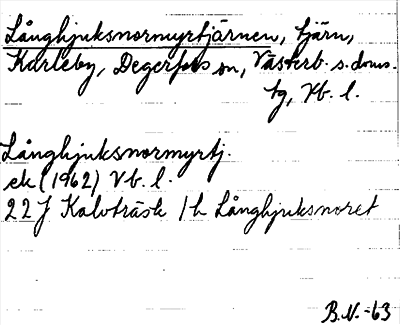 Långhjuksnormyrtjärnen, tjärn,
Karleby, Degerfors sn, Västerb. s. doms.
tg, Vb. l.
Långhjuksnormyrtj.
ek (1962) Vb. l.
22J Kalvträsk 1h Långhjuksnoret
B.N.-63